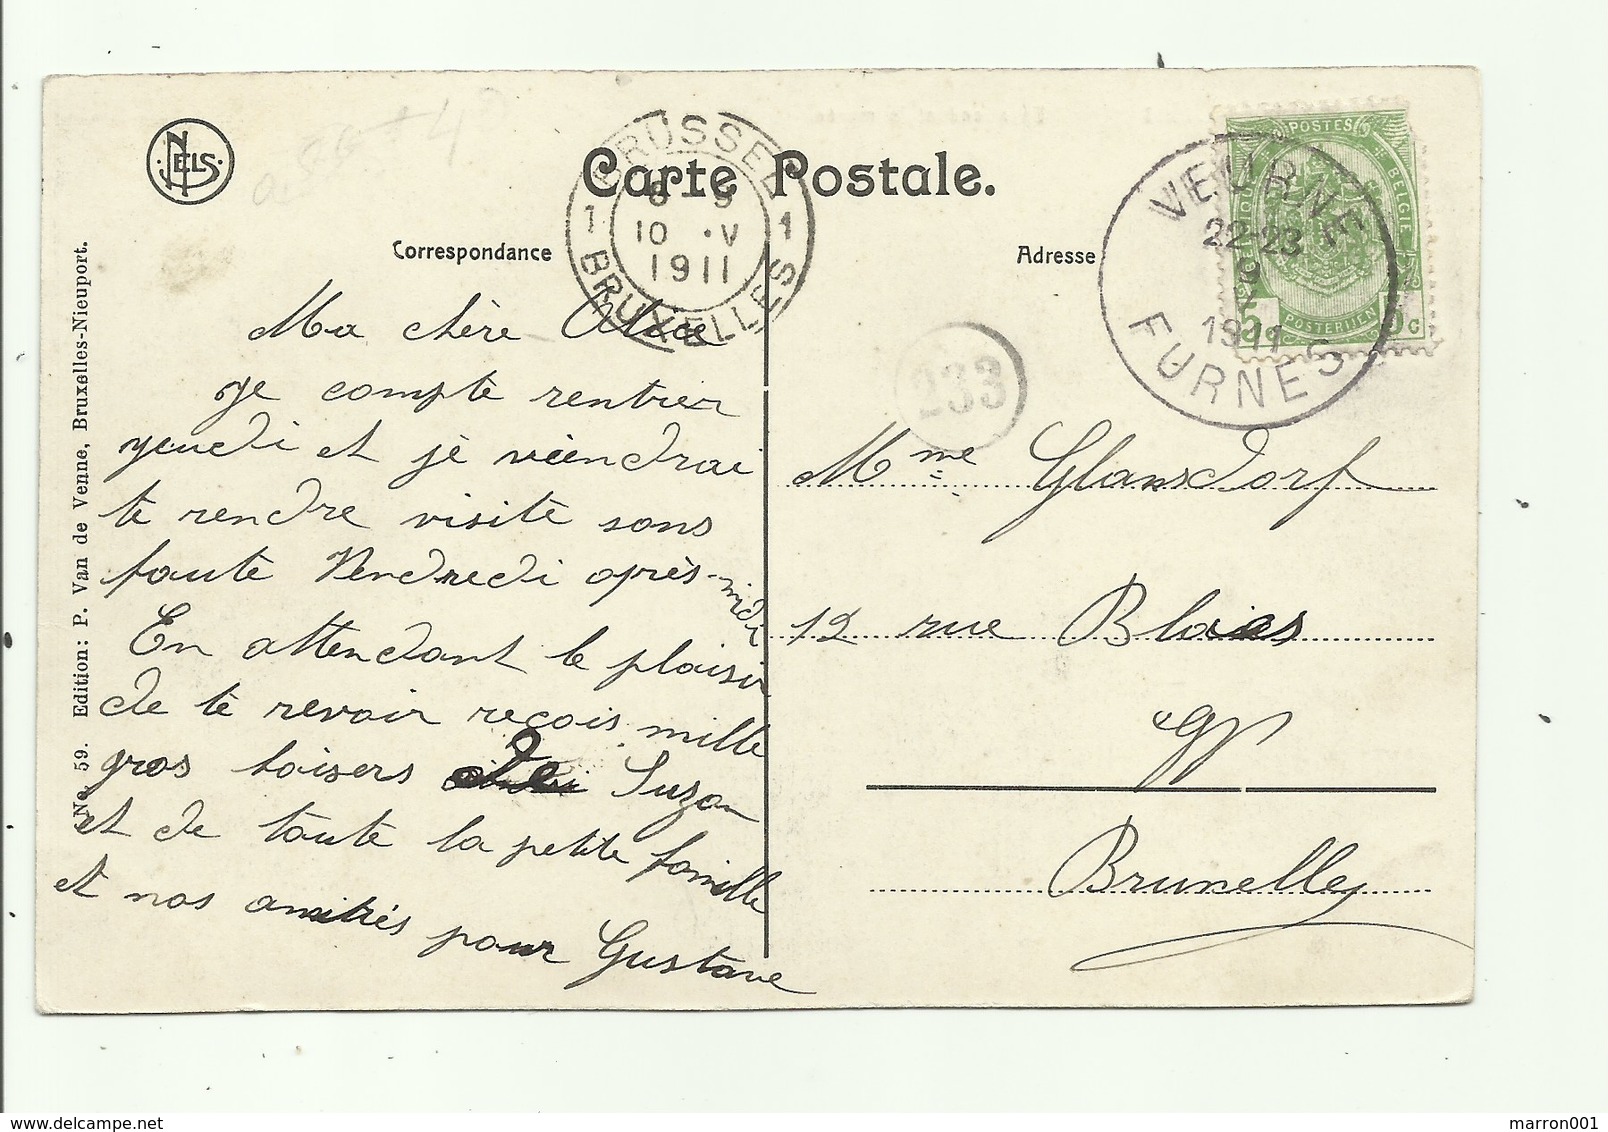 NELS
0,50 + 4
Carte Postale.
BRUSSEL
1 1
10 ·V
1911
BRUXELLES
VEURNE
22-23
9
1911
FURNES
POSTES
BELGIE
POSTERIJEN
5c
Correspondance
Adresse
No. 59. Edition: P. Van de Venne, Bruxelles-Nieuport.
233
Ma chère Alice
Je compte rentrer
jeudi et je viendrai
te rendre visite sans
faute Vendredi après-midi
En attendant le plaisir
de te revoir reçois mille
gros baisers de Suzon
et de toute la petite famille
et nos amitiés pour Gustave
Mme Glansdorf
12 rue Blaes
Bruxelles
marron001